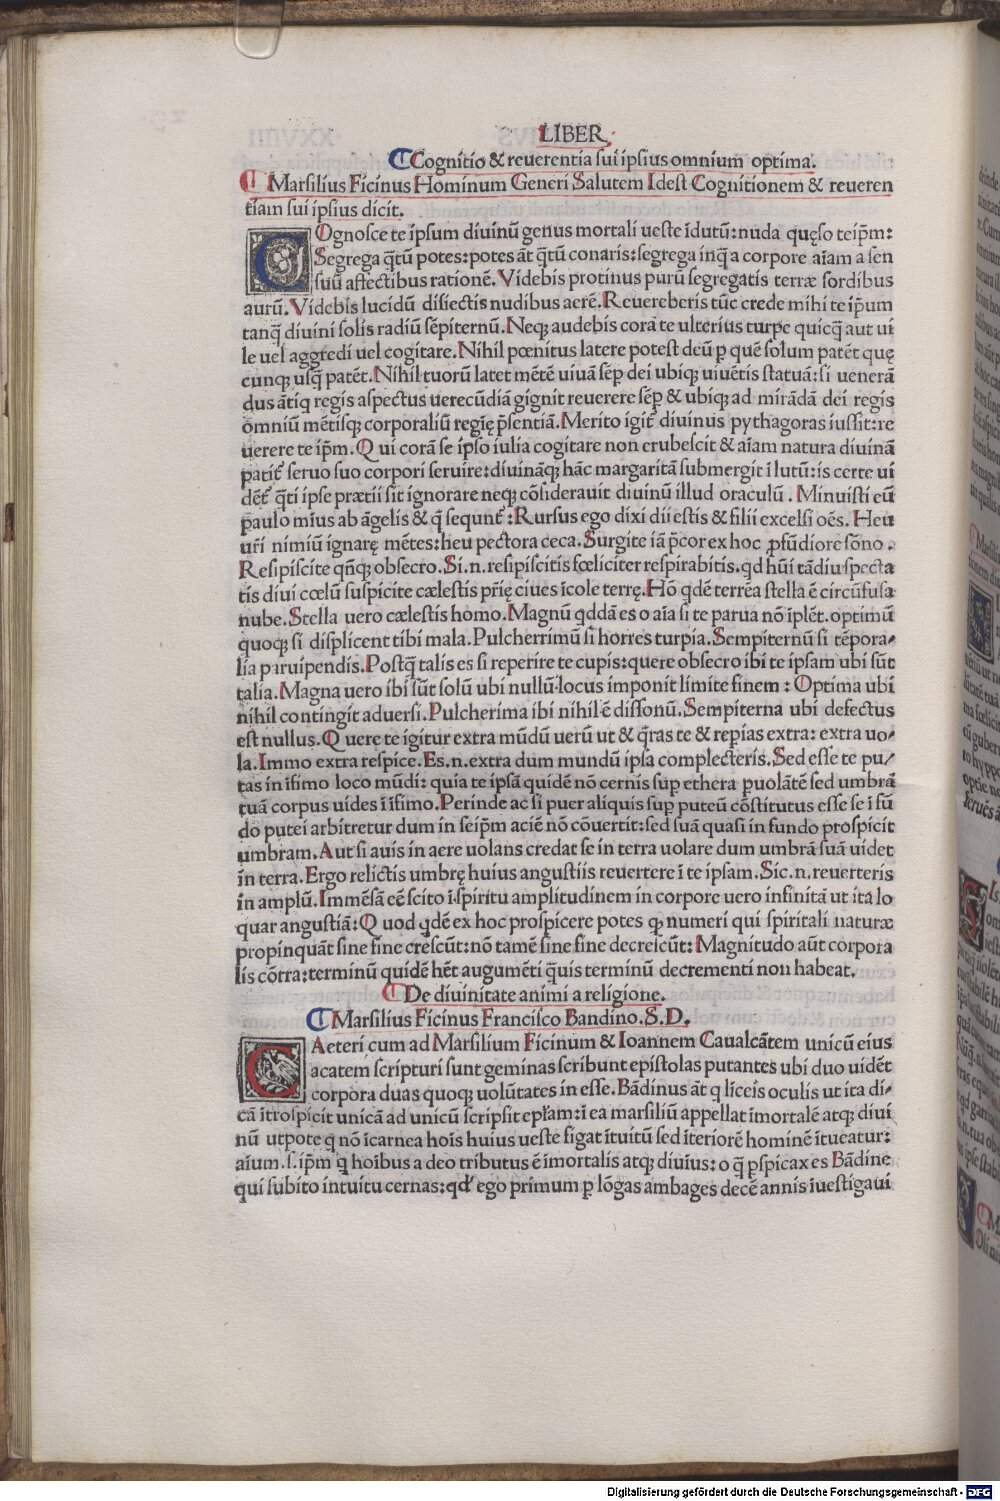 LIBER
Cognitio & reuerentia sui ipsius omnium optima.
Marsilius Ficinus Hominum Generi Salutem Idest Cognitionem & reueren
tiam sui ipsius dicit.
COgnosce te ipsum diuinū genus mortali ueste idutū:nuda quęso teip̄m:
Segrega q̄tū potes:potes āt q̄tū conaris:segrega inq̄ a corpore aīam a sen
suū affectibus rationē.Videbis protinus purū segregatis terræ sordibus
aurū.Videbis lucidū disiectis nudibus aerē.Reuereberis tūc crede mihi te ip̄um
tanq̄ diuini solis radiū sēpiternū.Neq; audebis corā te ulterius turpe quicq̄ aut ui
le uel aggredi uel cogitare.Nihil pœnitus latere potest deū p quē solum patēt quę
cunq; usq̄ patēt.Nihil tuorū latet mētē uiuā sēp dei ubiq; uiuētis statuā:si uenerā
dus ātiq regis aspectus uerecūdiā gignit reuerere sēp & ubiq; ad mirādā dei regis
omniū mētisq; corporaliū regię p̄sentiā.Merito igit̄ diuinus pythagoras iussit:re
uerere te ip̄m.Qui corā se ipso iulia cogitare non erubescit & aīam natura diuinā
patit̄ seruo suo corpori seruire:diuināq; hāc margaritā submergit ī lutū:is certe ui
dēt̄ q̄ti ipse prætii sit ignorare neq; cōsiderauit diuinū illud oraculū.Minuisti eū
paulo mius ab āgelis & q̄ sequnt̄:Rursus ego dixi dii estis & filii excelsi oēs.Heu
uri nimiū ignarę mētes:heu pectora ceca.Surgite iā p̄cor ex hoc pfūdiore sōno.
Resipiscite qn̄q; obsecro.Si.n.resipiscitis fœliciter respirabitis.qd hūi tādiu specta
tis diui cœlū suspicite cælestis prię ciues īcole terrę.Hō qdē terrēa stella ē circūfusa
nube.Stella uero cælestis homo.Magnū qddā es o aīa si te parua nō īplēt.optimū
quoq; si displicent tibi mala.Pulcherrimū si horres turpia.Sempiternū si tēpora-
lia paruipendis.Postq̄ talis es si reperire te cupis:quere obsecro ibi te ipsam ubi sūt
talia.Magna uero ibi sūt solū ubi nullū locus imponit limite finem:Optima ubi
nihil contingit aduersi.Pulcherima ibi nihil ē dissonū.Sempiterna ubi defectus
est nullus.Quere te igitur extra mūdū uerū ut & q̄ras te & repias extra:extra uo-
la.Immo extra respice.Es.n.extra dum mundū ipsa complecteris.Sed esse te pu-
tas in īfimo loco mūdi:quia te ipsā quidē nō cernis sup ethera puolātē sed umbrā
tuā corpus uides ī īfimo.Perinde ac si puer aliquis sup puteū cōstitutus esse se ī fū
do putei arbitretur dum in seip̄m aciē nō cōuertit:sed suā quasi in fundo prospicit
umbram.Aut si auis in aere uolans credat se in terra uolare dum umbrā suā uidet
in terra.Ergo relictis umbrę huius angustiis reuertere ī te ipsam.Sic.n.reuerteris
in amplū.Immēsā eē scito ī spiritu amplitudinem in corpore uero infinitā ut ita lo
quar angustiā:Quod qdē ex hoc prospicere potes q; numeri qui spiritali naturæ
propinquāt sine fine crescūt:nō tamē sine fine decrescūt:Magnitudo aūt corpora
lis cōtra:terminū quidē hēt augumēti q̄uis terminū decrementi non habeat.
De diuinitate animi a religione.
Marsilius Ficinus Francisco Bandino.S.D.
CAeteri cum ad Marsilium Ficinum & Ioannem Caualcātem unicū eius
acatem scripturi sunt geminas scribunt epistolas putantes ubi duo uidēt
corpora duas quoq; uolūtates in esse.Bādinus āt q līceis oculis ut ita di-
cā ītrospicit unicā ad unicū scripsit epl̄am:ī ea marsiliū appellat īmortalē atq; diui
nū utpote q nō īcarnea hoīs huius ueste figat ītuitū sed īteriorē hominē ītueatur:
aīum.s.ip̄m q hoībus a deo tributus ē īmortalis atq; diuīus:o q̄ pspicax es Bādine
qui subito intuitu cernas:qd' ego primum p lōgas ambages decē annis īuestigaui
Digitalisierung gefördert durch die Deutsche Forschungsgemeinschaft - DFG